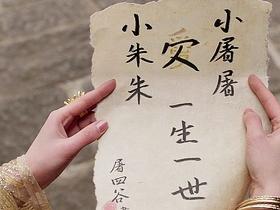 小屠屠
爱
一生一世
小朱朱
屠四谷